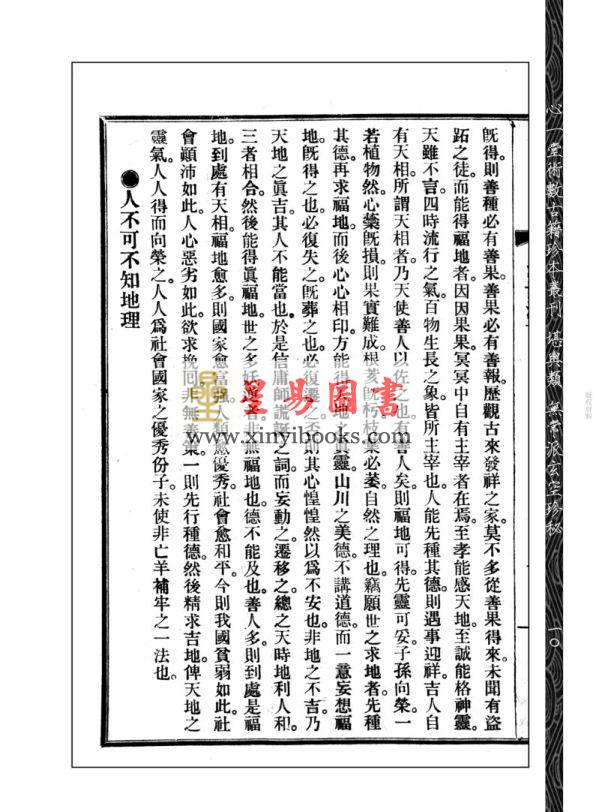 既得則善種必有善果善果必有善報歷觀古來發祥之家莫不多從善果得來未聞有盜
跖之徒而能得福地者因因果果冥冥中自有主宰者在焉至孝能感天地至誠能格神靈
天雖不言四時流行之氣百物生長之象皆所主宰也人能先種其德則遇事迎祥吉人自
有天相所謂天相者乃天使善人以佐之也有善人矣則福地可得先靈可妥子孫向榮一
若植物然心藥既損則果實難成根荄既朽枝葉必萎自然之理也竊願世之求地者先種
其德再求福地而後心心相印方能得天地之眞靈山川之美德不講道德而一意妄想福
地既得之也必復失之既葬之也必復遷之否則其心惶惶然以爲不安也非地之不吉乃
天地之眞吉其人不能當也於是信庸師謊誕之詞而妄動之遷移之總之天時地利人和
三者相合然後能得眞福地世之多妖者非無福地也德不能及也善人多則到處是福
地到處有天相福地愈多則國家愈富強人類愈優秀社會愈和平今則我國貧弱如此社
會顚沛如此人心惡劣如此欲求挽回非無善策一則先行種德然後精求吉地俾天地之
靈氣人人得而向榮之人人爲社會國家之優秀份子未使非亡羊補牢之一法也
●人不可不知地理
心一堂術數古籍珍本叢刊 堪輿類 無常派玄空珍秘
一〇
星易圖書
www.xinyibooks.com